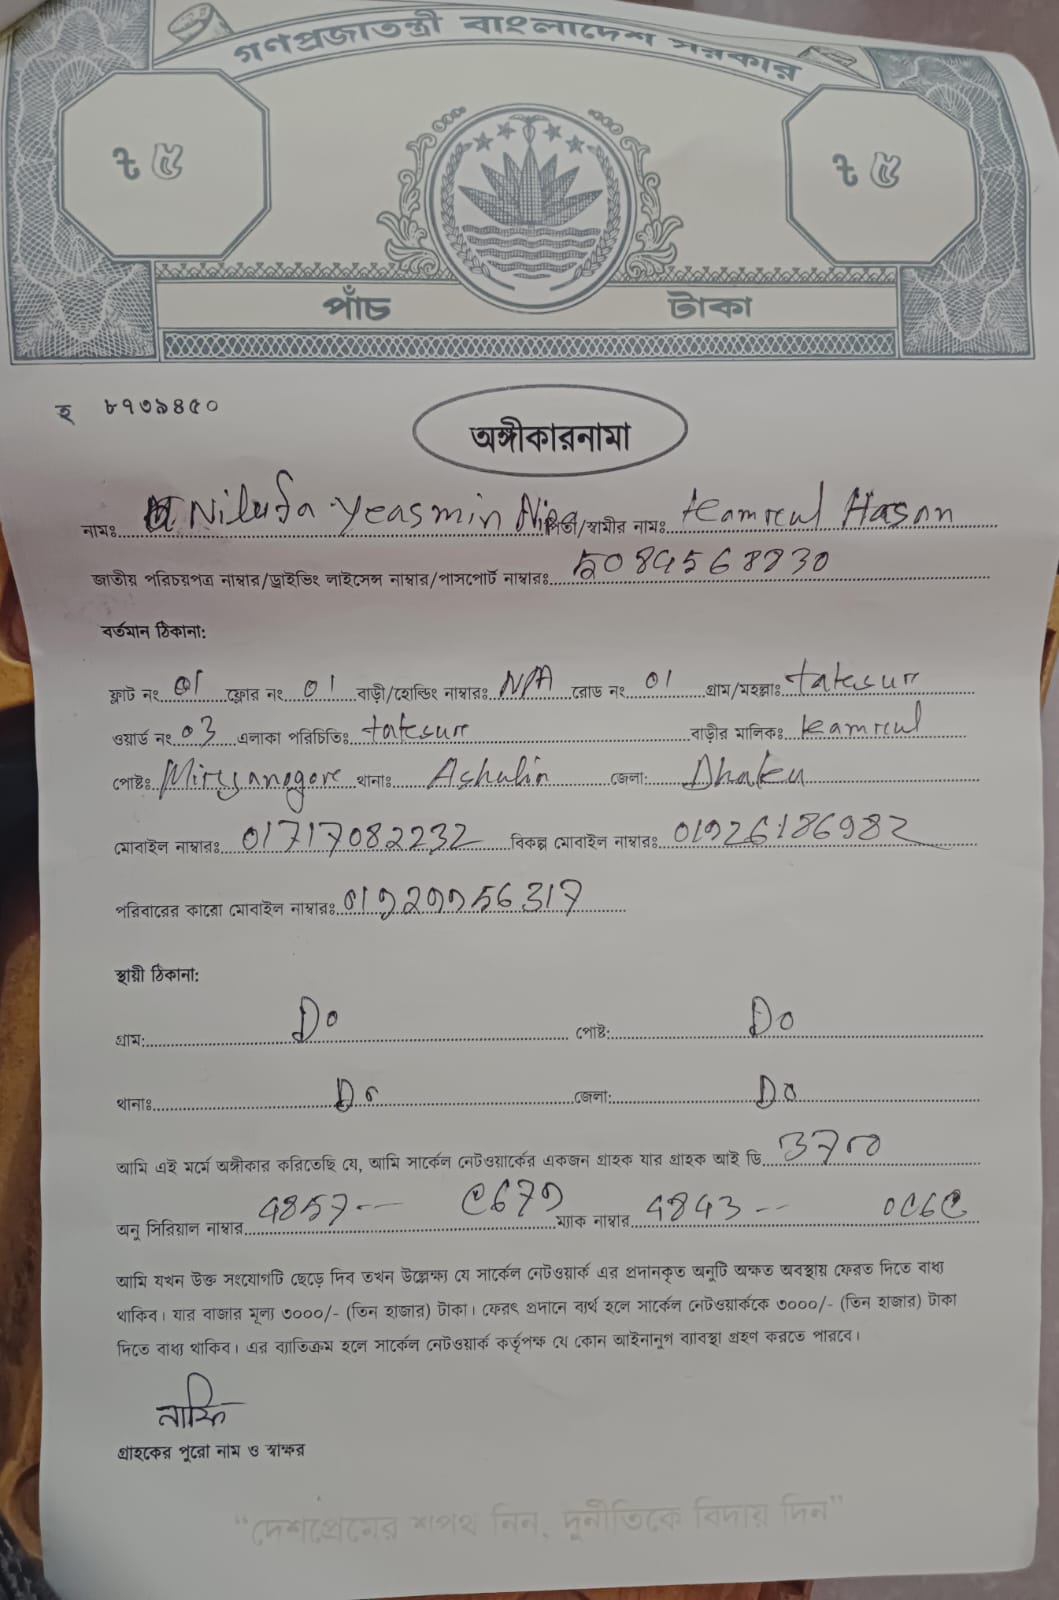 গণপ্রজাতন্ত্রী বাংলাদেশ সরকার
৳ ৫ ৳ ৫
পাঁচ টাকা
হ ৮৭৩৯৪৫০
অঙ্গীকারনামা
নামঃ Nilufa Yeasmin পিতা/স্বামীর নামঃ Hasan
জাতীয় পরিচয়পত্র নাম্বার/ড্রাইভিং লাইসেন্স নাম্বার/পাসপোর্ট নাম্বারঃ
বর্তমান ঠিকানা:
ফ্লাট নং 01 ফ্লোর নং 01 বাড়ী/হোল্ডিং নাম্বারঃ N/A রোড নং 01 গ্রাম/মহল্লাঃ
ওয়ার্ড নং 03 এলাকা পরিচিতিঃ বাড়ীর মালিকঃ
পোষ্টঃ থানাঃ Ashulia জেলা: Dhaka
মোবাইল নাম্বারঃ 01717082232 বিকল্প মোবাইল নাম্বারঃ 01926186982
পরিবারের কারো মোবাইল নাম্বারঃ 01929956317
স্থায়ী ঠিকানা:
গ্রাম: Do পোষ্ট: Do
থানাঃ Do জেলা: Do
আমি এই মর্মে অঙ্গীকার করিতেছি যে, আমি সার্কেল নেটওয়ার্কের একজন গ্রাহক যার গ্রাহক আই ডি 3700
অনু সিরিয়াল নাম্বার ম্যাক নাম্বার
আমি যখন উক্ত সংযোগটি ছেড়ে দিব তখন উল্লেক্ষ্য যে সার্কেল নেটওয়ার্ক এর প্রদানকৃত অনুটি অক্ষত অবস্থায় ফেরত দিতে বাধ্য
থাকিব। যার বাজার মূল্য ৩০০০/- (তিন হাজার) টাকা। ফেরৎ প্রদানে ব্যর্থ হলে সার্কেল নেটওয়ার্ককে ৩০০০/- (তিন হাজার) টাকা
দিতে বাধ্য থাকিব। এর ব্যাতিক্রম হলে সার্কেল নেটওয়ার্ক কর্তৃপক্ষ যে কোন আইনানুগ ব্যাবস্থা গ্রহণ করতে পারবে।
গ্রাহকের পুরো নাম ও স্বাক্ষর
“দেশপ্রেমের শপথ নিন, দুর্নীতিকে বিদায় দিন”